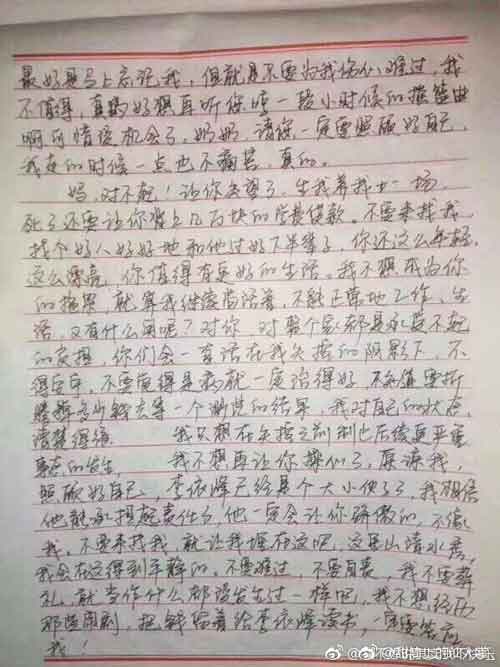 最好是马上忘记我，但就是不要为我伤心难过，我
不值得，真的好想再听你哼一段小时候的摇篮曲
啊可惜没机会了，奶奶，请你一定要照顾好自己，
我走的时候一点也不痛苦，真的。
妈，对不起！让你失望了，生我养我廿一场，
死了还要让你背上几万块的学费贷款。不要来找我，
找个好人好好地和他过好下半辈子，你还这么年轻，
这么漂亮，你值得有更好的生活。我不想成为你
的拖累，就算我继续苟活着，不能正常地工作、生
活，又有什么用呢？对你，对整个家都是承受不起
的灾难，你们会一直活在我失控的阴影下，不
得安宁，不要觉得是病就一定治得好，不知道要折
腾掉多少钱去等一个渺茫的结果，我对自己的状态
清楚得很 我只想在失控之前制止后续更严重
事态的发生 我不想再让你操心了，原谅我，
照顾好自己，李依烽已经是个大小伙子了，我相信
他能承担起责任了，他一定会让你骄傲的，不像
我，不要来找我，就让我埋在这吧，这里山清水秀，
我会在这得到安静的。不要难过，不要自责，我不要葬
礼，就当作什么都没发生过一样吧，我不想经历
那些闹剧，把钱留着给李依烽读书，一定要答应
我！